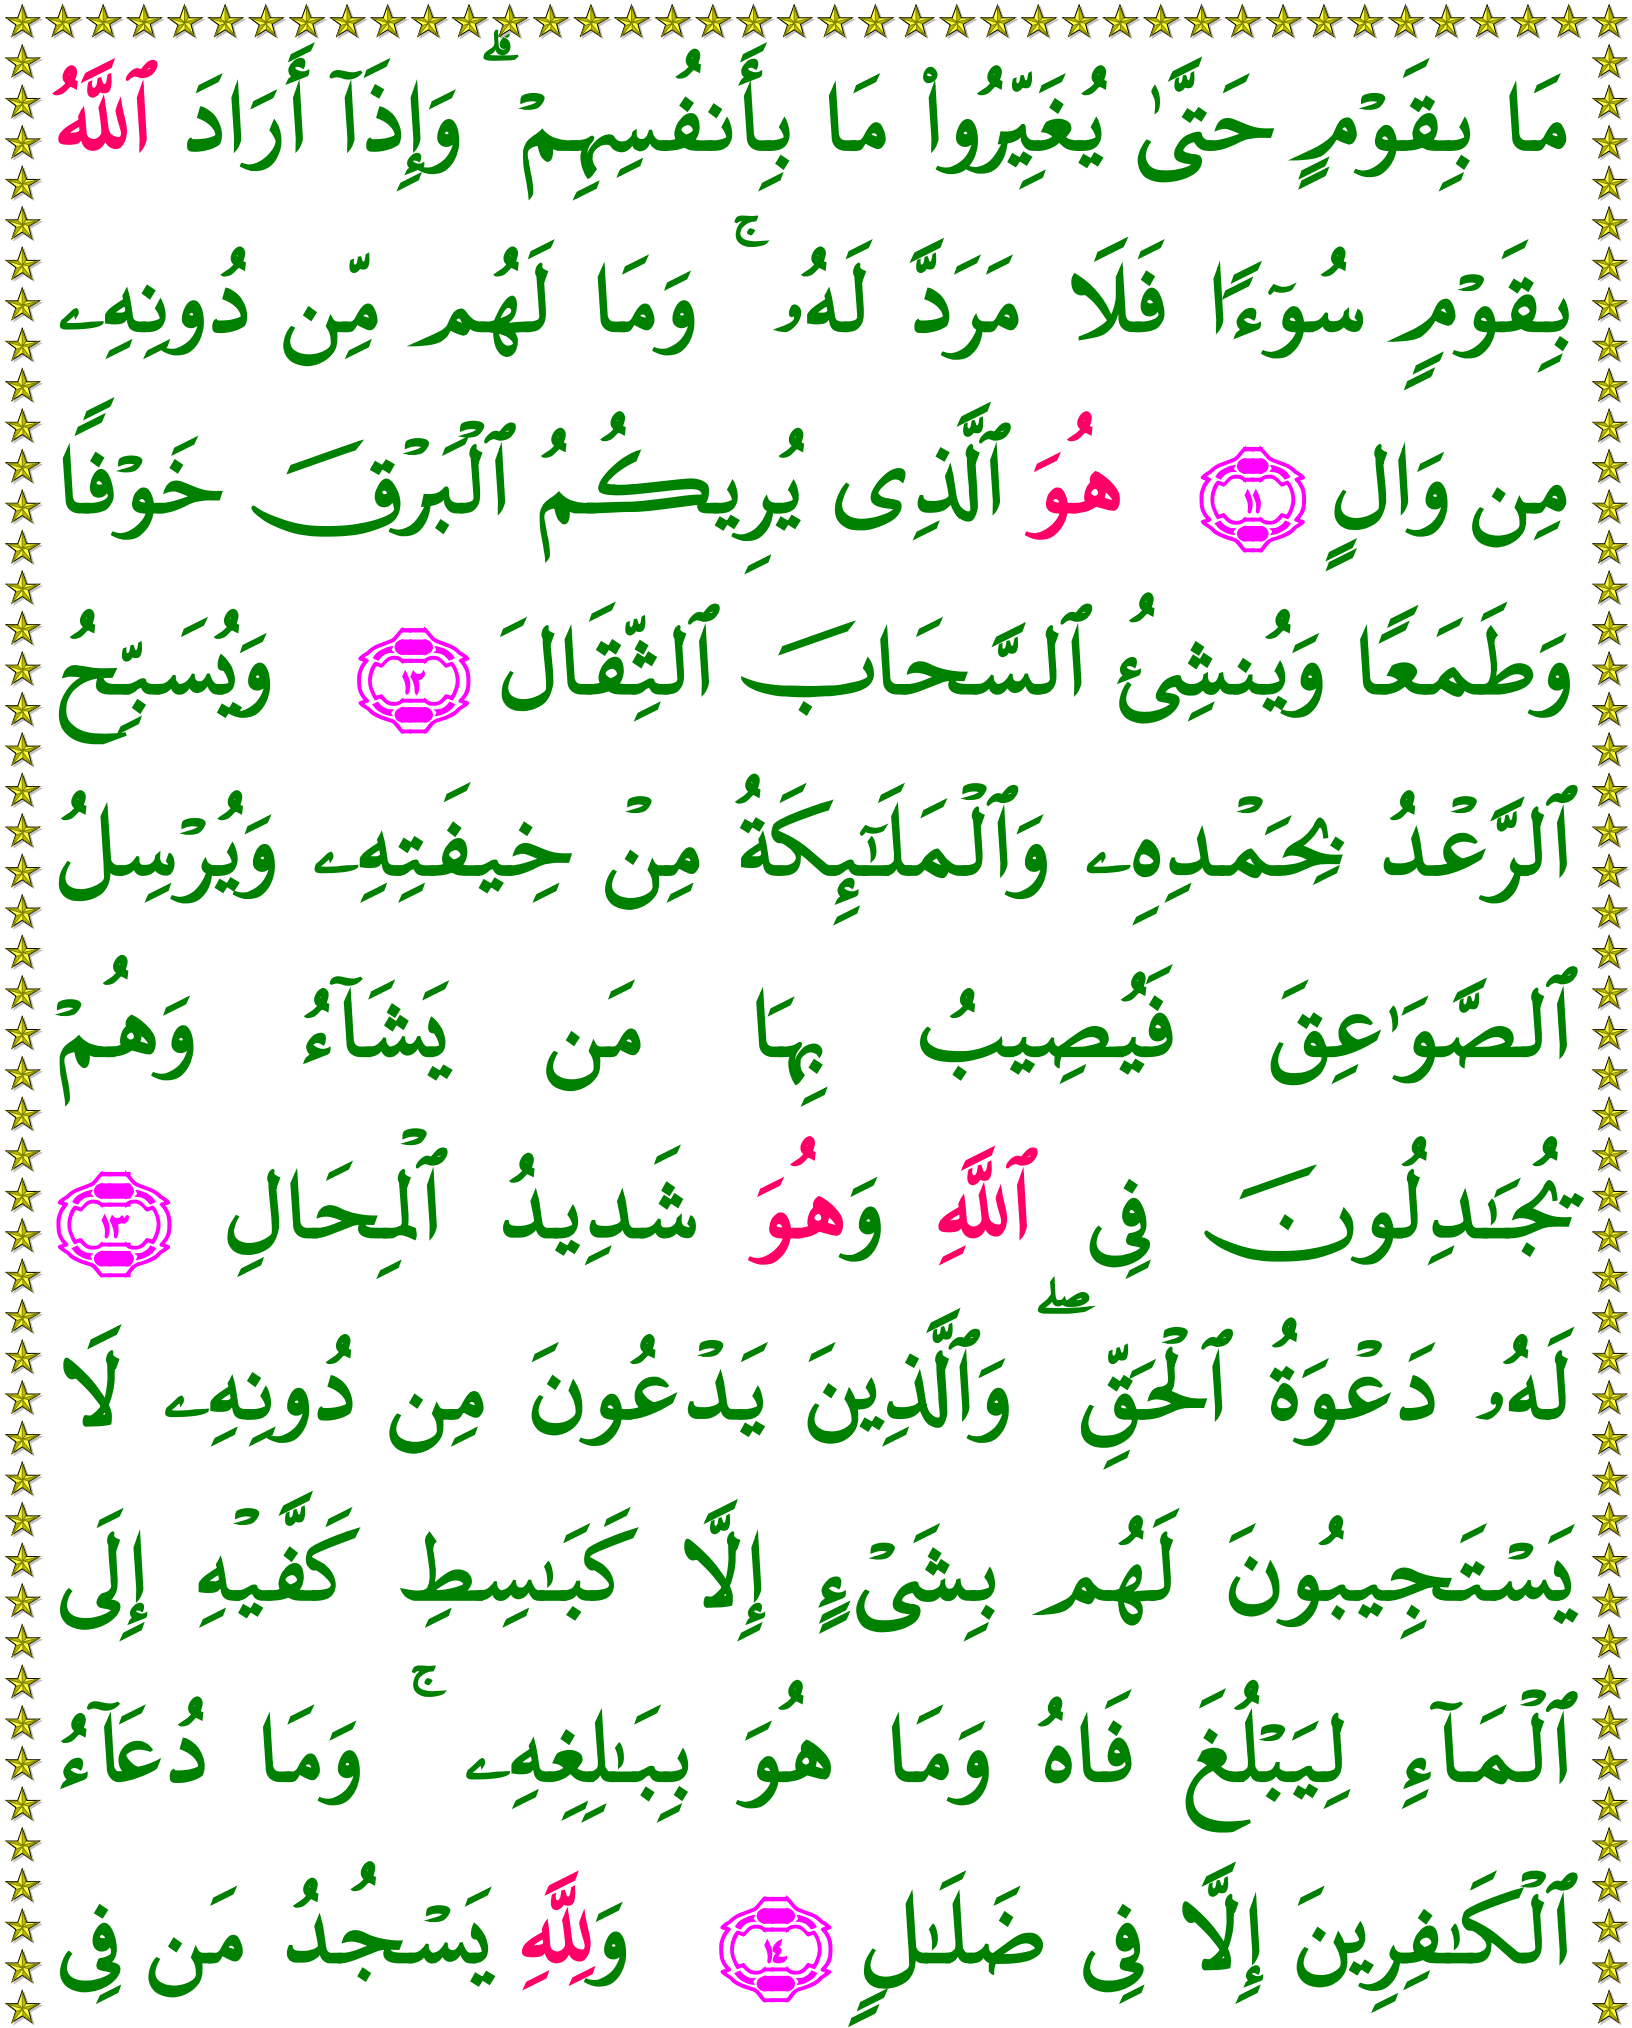 مَا بِقَوۡمٍ حَتَّىٰ يُغَيِّرُواْ مَا بِأَنفُسِهِمۡۗ وَإِذَآ أَرَادَ ٱللَّهُ
بِقَوۡمٍ سُوٓءًا فَلَا مَرَدَّ لَهُۥۚ وَمَا لَهُم مِّن دُونِهِۦ
مِن وَالٍ ١١ هُوَ ٱلَّذِى يُرِيكُمُ ٱلۡبَرۡقَ خَوۡفًا
وَطَمَعًا وَيُنشِئُ ٱلسَّحَابَ ٱلثِّقَالَ ١٢ وَيُسَبِّحُ
ٱلرَّعۡدُ بِحَمۡدِهِۦ وَٱلۡمَلَـٰٓئِكَةُ مِنۡ خِيفَتِهِۦ وَيُرۡسِلُ
ٱلصَّوَٰعِقَ فَيُصِيبُ بِهَا مَن يَشَآءُ وَهُمۡ
يُجَـٰدِلُونَ فِى ٱللَّهِ وَهُوَ شَدِيدُ ٱلۡمِحَالِ ١٣
لَهُۥ دَعۡوَةُ ٱلۡحَقِّۖ وَٱلَّذِينَ يَدۡعُونَ مِن دُونِهِۦ لَا
يَسۡتَجِيبُونَ لَهُم بِشَىۡءٍ إِلَّا كَبَـٰسِطِ كَفَّيۡهِ إِلَى
ٱلۡمَآءِ لِيَبۡلُغَ فَاهُ وَمَا هُوَ بِبَـٰلِغِهِۦۚ وَمَا دُعَآءُ
ٱلۡكَـٰفِرِينَ إِلَّا فِى ضَلَـٰلٍ ١٤ وَلِلَّهِ يَسۡجُدُ مَن فِى